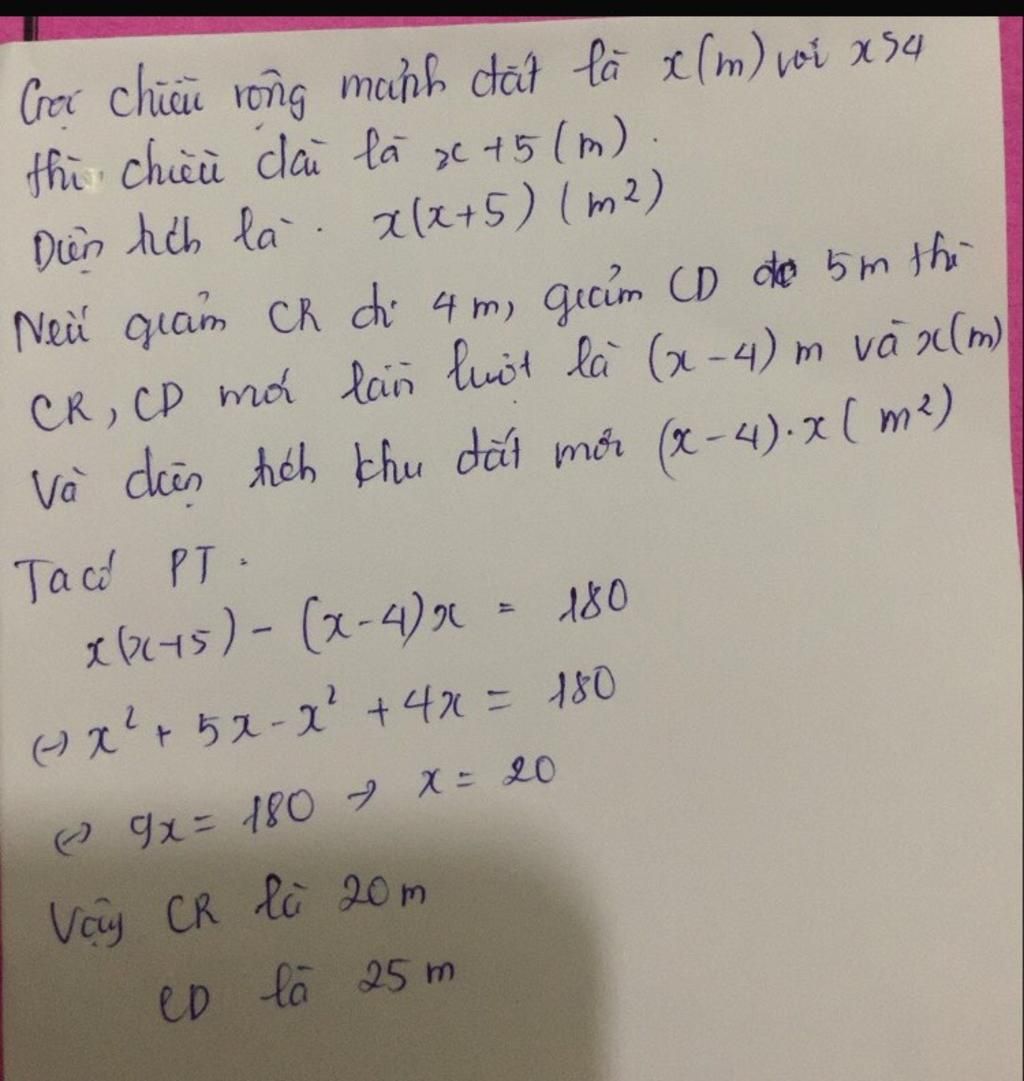 Gọi chiều rộng mảnh đất là x(m) với x>4
thì chiều dài là x+5(m).
Diện tích là. x(x+5) (m²)
Nếu giảm CR đi 4m, giảm CD đi 5m thì
CR, CD mới lần lượt là (x-4) m và x(m)
Và diện tích khu đất mới (x-4).x( m²)
Ta có PT.
x(x+5) - (x-4)x = 180
<-> x² + 5x - x² + 4x = 180
<-> 9x = 180 -> x = 20
Vậy CR là 20m
CD là 25m